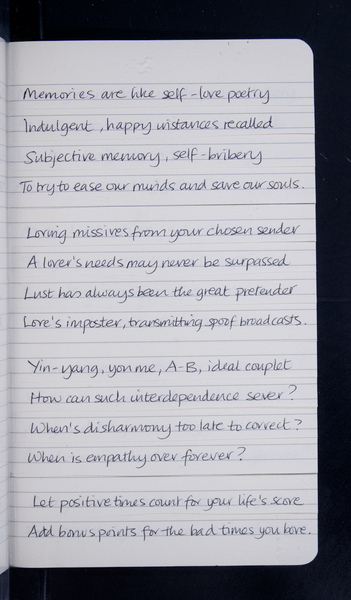 Memories are like self-love poetry
Indulgent, happy instances recalled
Subjective memory, self-bribery
To try to ease our minds and save our souls.
Loving missives from your chosen sender
A lover's needs may never be surpassed
Lust has always been the great pretender
Love's imposter, transmitting spoof broadcasts.
Yin-yang, you me, A-B, ideal couplet
How can such interdependence sever?
When's disharmony too late to correct?
When is empathy over forever?
Let positive times count for your life's score
Add bonus points for the bad times you bore.